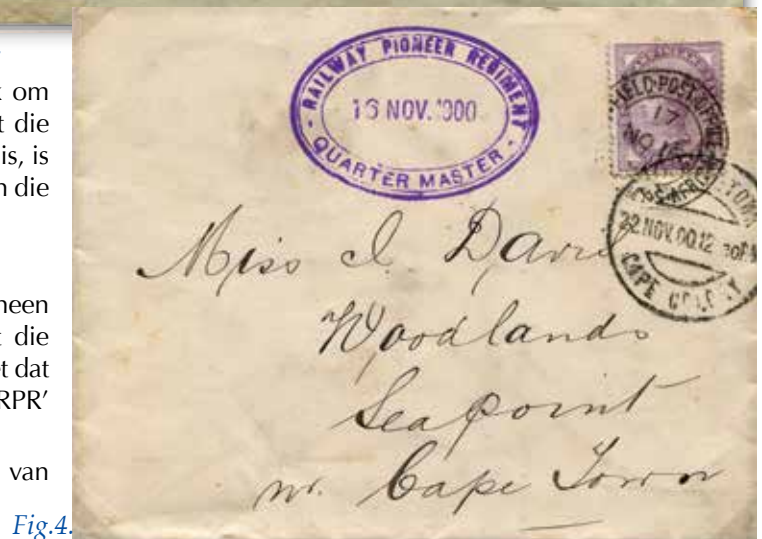 om
t die
is, is
die
heen
die
et dat
RPR'
van
Fig.4.
RAILWAY PIONEER REGIMENT
16 NOV. 1900
QUARTER MASTER
FIELD-POST OFFICE
17
NO 16
TOWN
22 NOV.00.12 30PM
CAPE COLONY
Miss I. Davis
Woodlands
Sea Point
nr. Cape Town